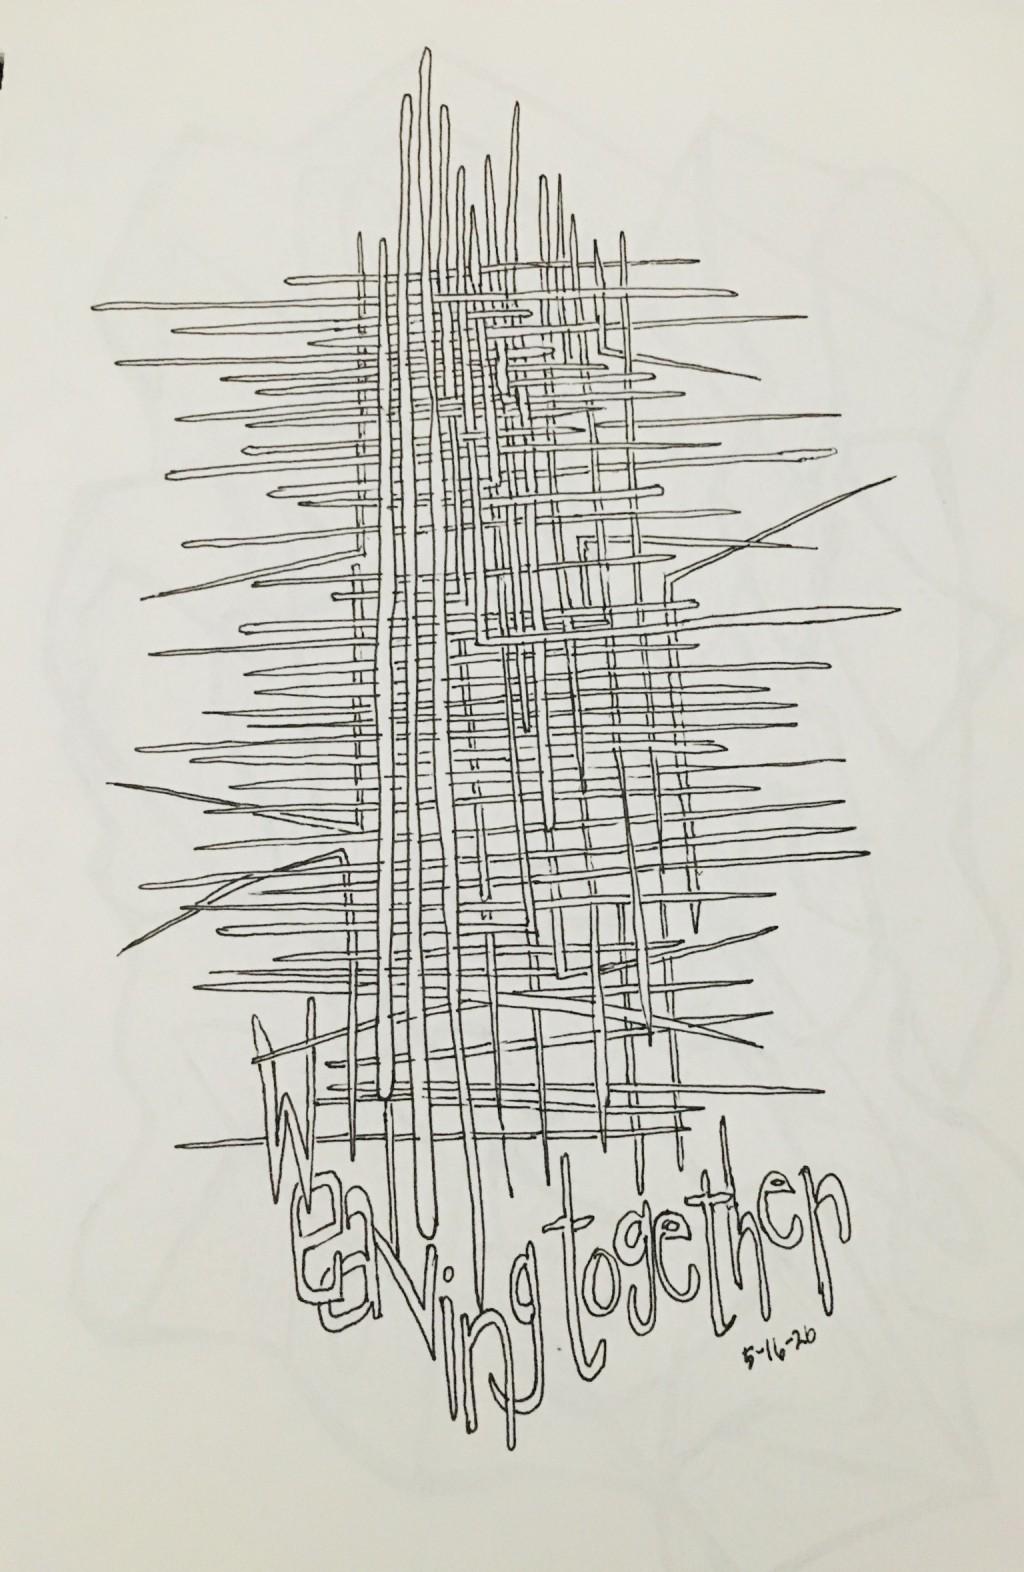 Weaving together
5-16-26